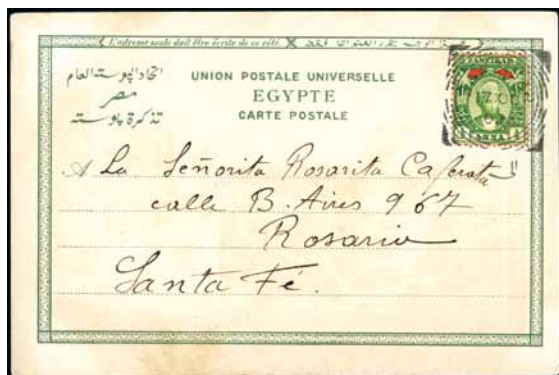 L'adresse seule doit être écrite de ce côté.
اتحاد البوستة العام
مصر
تذكرة بوستة
UNION POSTALE UNIVERSELLE
EGYPTE
CARTE POSTALE
ZANZIBAR
ANNA
A La Señorita Rosarita Caferata الى
calle B. Aires 967
Rosario
Santa Fé.